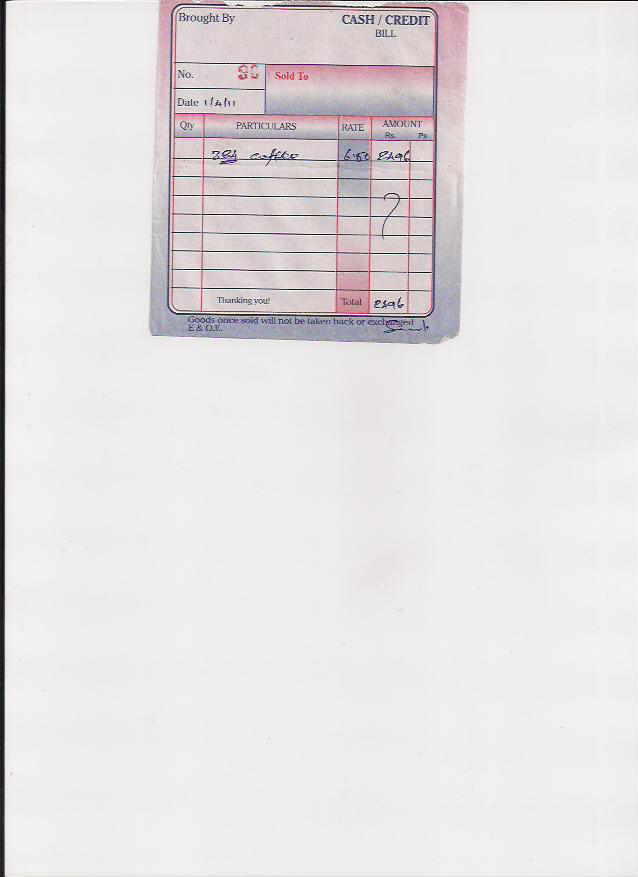 Brought By CASH / CREDIT
BILL
No.
Sold To
Date 1/4/11
Qty PARTICULARS RATE AMOUNT
Rs. Ps.
384 coffee 6.50 2496
Thanking you! Total 2496
Goods once sold will not be taken back or exchanged
E & O.E.